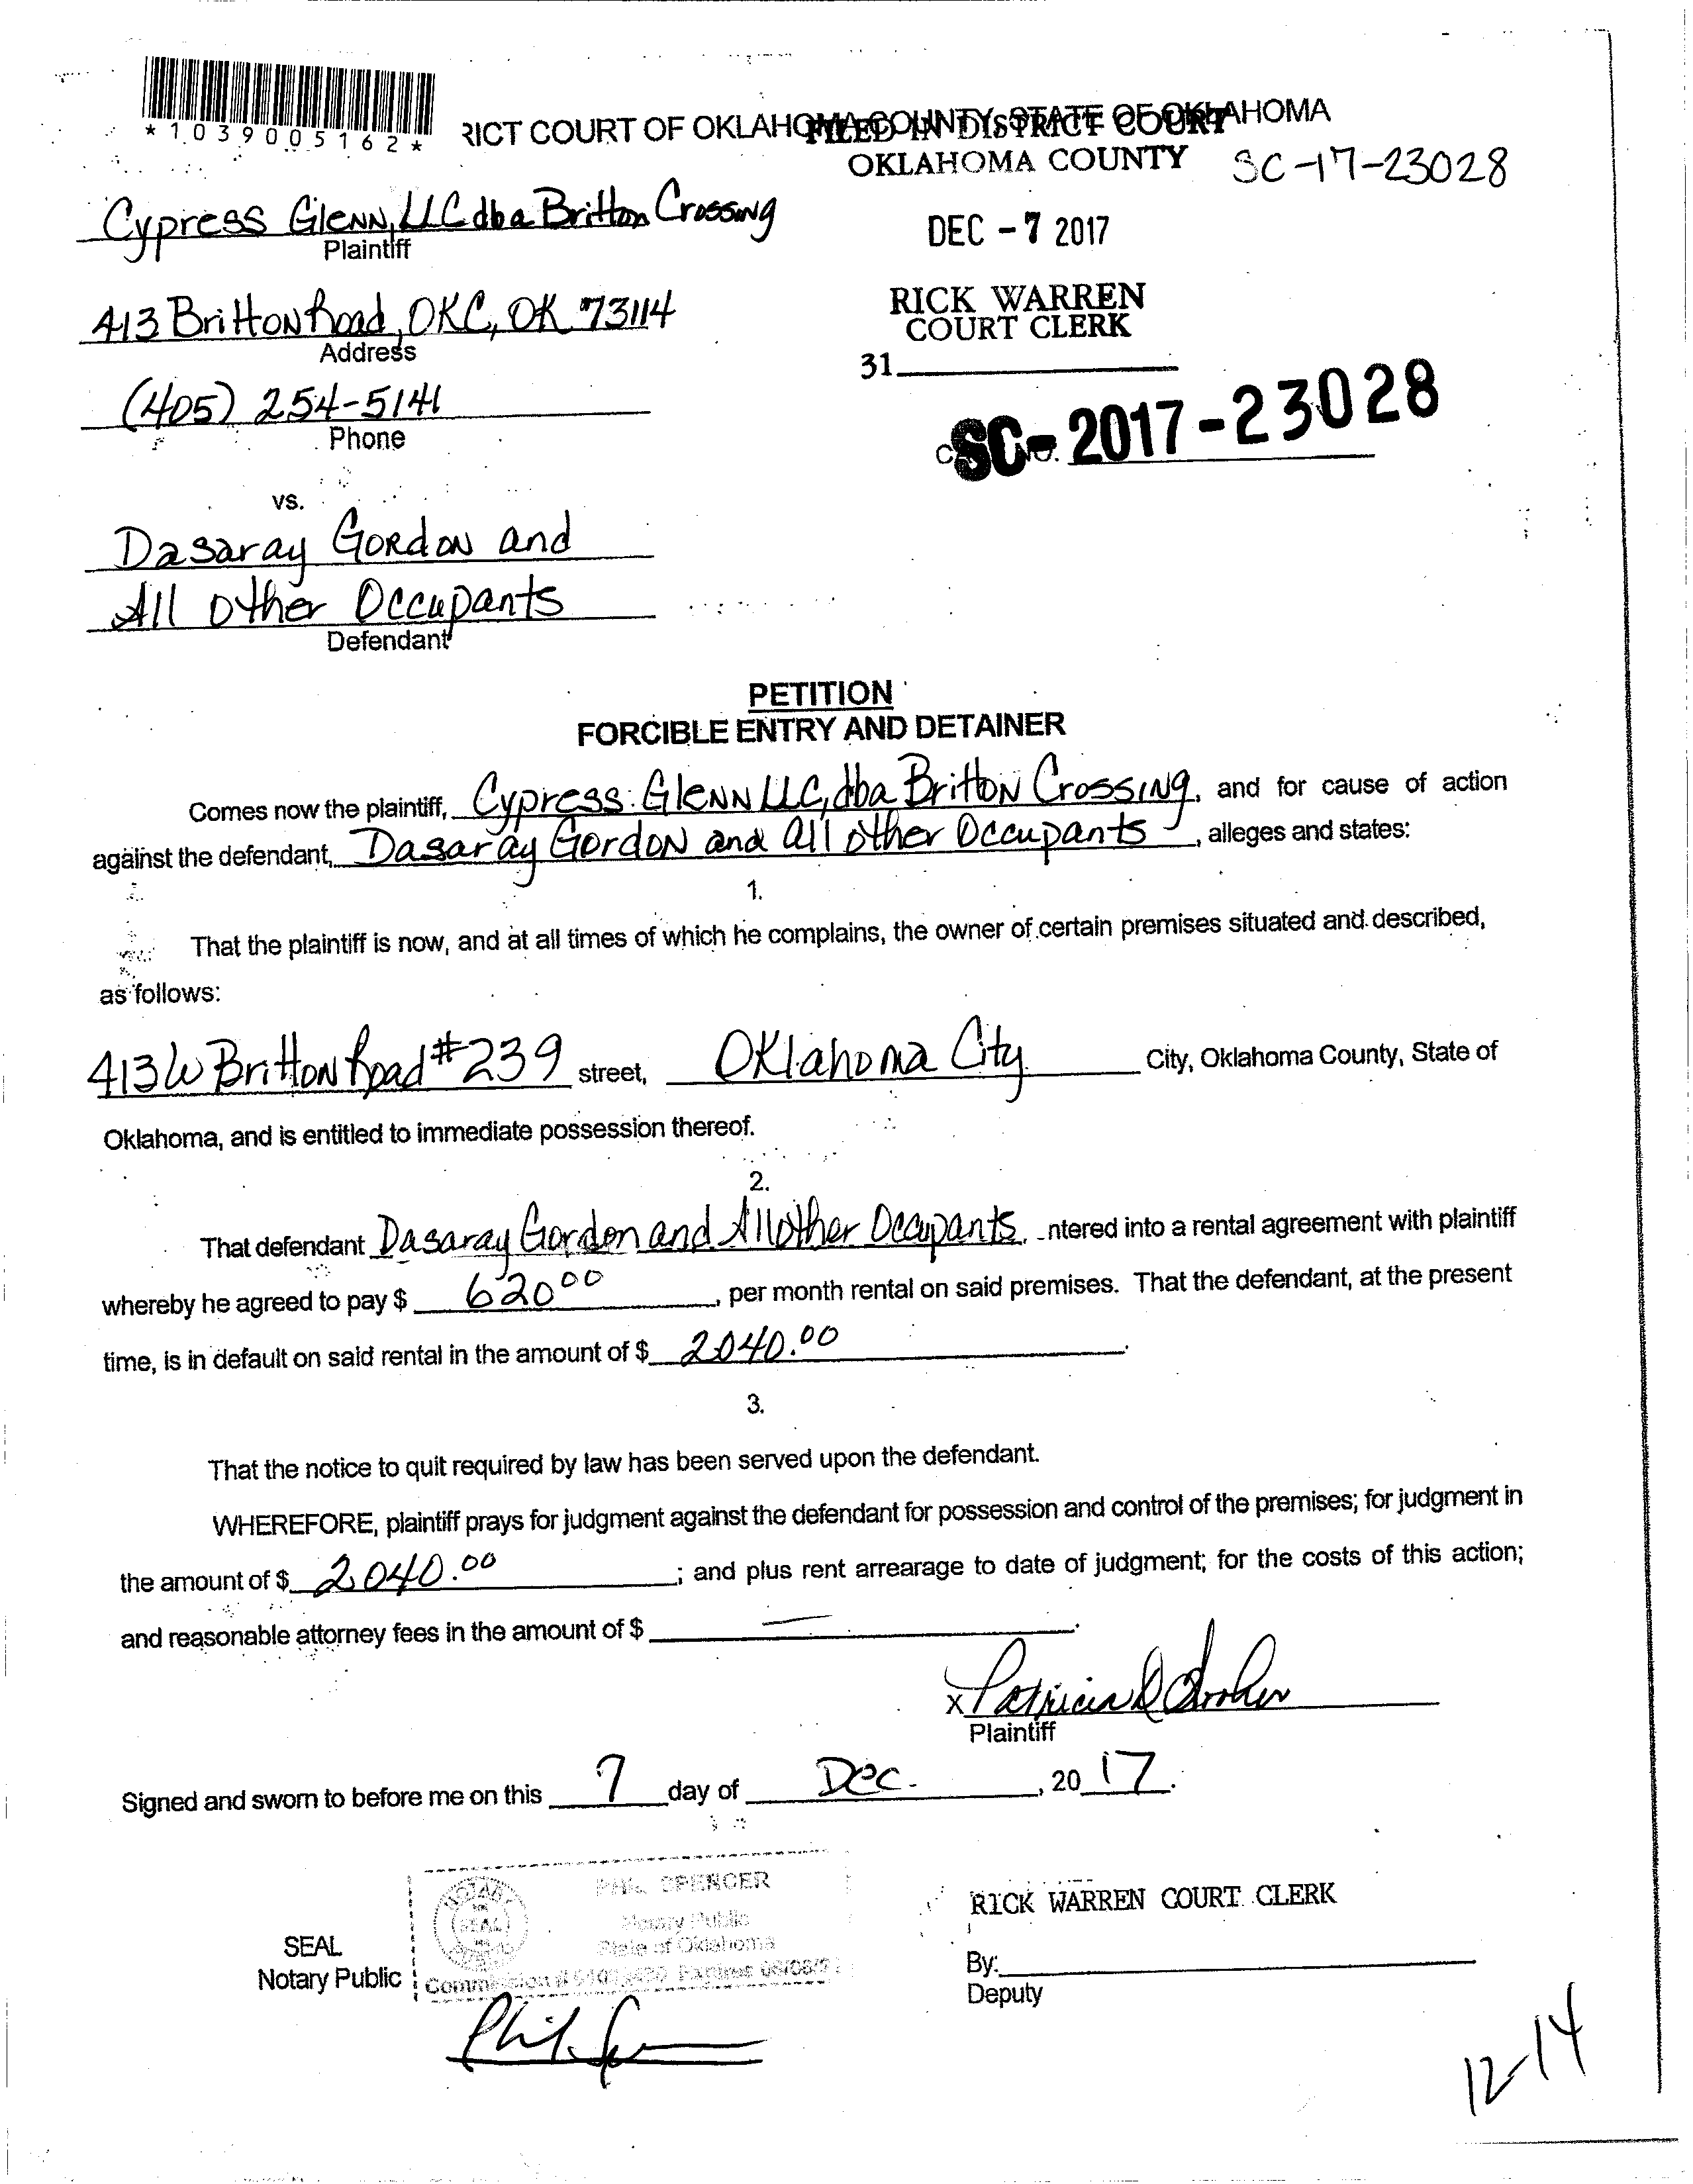 *1039005162*
RICT COURT OF OKLAHOMA COUNTY, STATE OF OKLAHOMA
FILED IN DISTRICT COURT
OKLAHOMA COUNTY SC-17-23028
Cypress Glenn, LLC dba Britton Crossing
Plaintiff
DEC - 7 2017
413 Britton Road, OKC, OK 73114
Address
RICK WARREN
COURT CLERK
31
(405) 254-5141
Phone
SC-2017-23028
vs.
Dasaray Gordon and
All other Occupants
Defendant
PETITION
FORCIBLE ENTRY AND DETAINER
Comes now the plaintiff, Cypress Glenn LLC, dba Britton Crossing, and for cause of action
against the defendant, Dasaray Gordon and all other Occupants, alleges and states:
1.
That the plaintiff is now, and at all times of which he complains, the owner of certain premises situated and described,
as follows:
413 W Britton Road #239 street, Oklahoma City City, Oklahoma County, State of
Oklahoma, and is entitled to immediate possession thereof.
2.
That defendant Dasaray Gordon and All other Occupants, ntered into a rental agreement with plaintiff
whereby he agreed to pay $ 620 00, per month rental on said premises. That the defendant, at the present
time, is in default on said rental in the amount of $ 2040.00.
3.
That the notice to quit required by law has been served upon the defendant.
WHEREFORE, plaintiff prays for judgment against the defendant for possession and control of the premises; for judgment in
the amount of $ 2040.00; and plus rent arrearage to date of judgment; for the costs of this action;
and reasonable attorney fees in the amount of $ —.
x Patricia D
Plaintiff
Signed and sworn to before me on this 7 day of Dec., 20 17.
PHIL SPENCER
Notary Public
State of Oklahoma
SEAL
Notary Public
RICK WARREN COURT CLERK
By:
Deputy
12-14